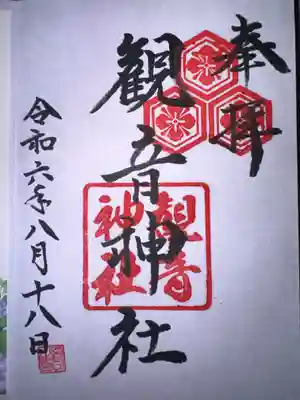 奉拝
観音神社
観音
神社
令和六年八月十八日